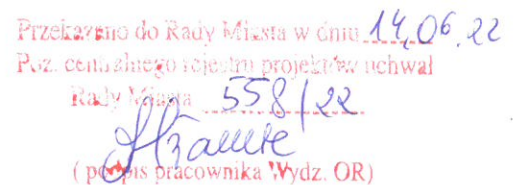 Przekazano do Rady Miasta w dniu 14.06.22
Poz. centralnego rejestru projektów uchwał
Rady Miasta 558/22
(podpis pracownika Wydz. OR)